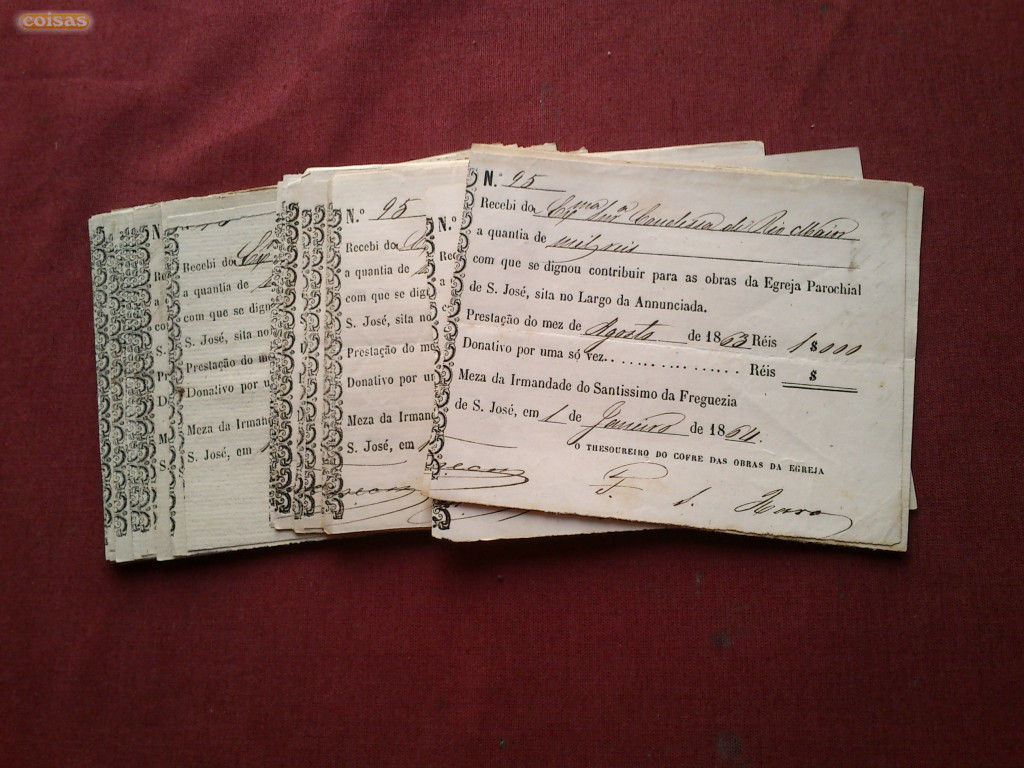 coisas
N.º 95
Recebi do Ex.ma Sr.a Condessa de Rio Maior
a quantia de mil reis
com que se dignou contribuir para as obras da Egreja Parochial
de S. José, sita no Largo da Annunciada.
Prestação do mez de Agosto de 1863 Réis 1$000
Donativo por uma só vez. . . . . . . . . . . . . . . Réis $
Meza da Irmandade do Santissimo da Freguezia
de S. José, em 1 de Janeiro de 1864.
O THESOUREIRO DO COFRE DAS OBRAS DA EGREJA
F. S.
N.º
N.º 95
Recebi do
a quantia de
com que se dig
S. José, sita no
Prestação do me
Donativo por u
Meza da Irman
S. José, em
Recebi do
a quantia de
com que se dign
S. José, sito no
Prestação do me
Donativo por u
Meza da Irman
S. José, em